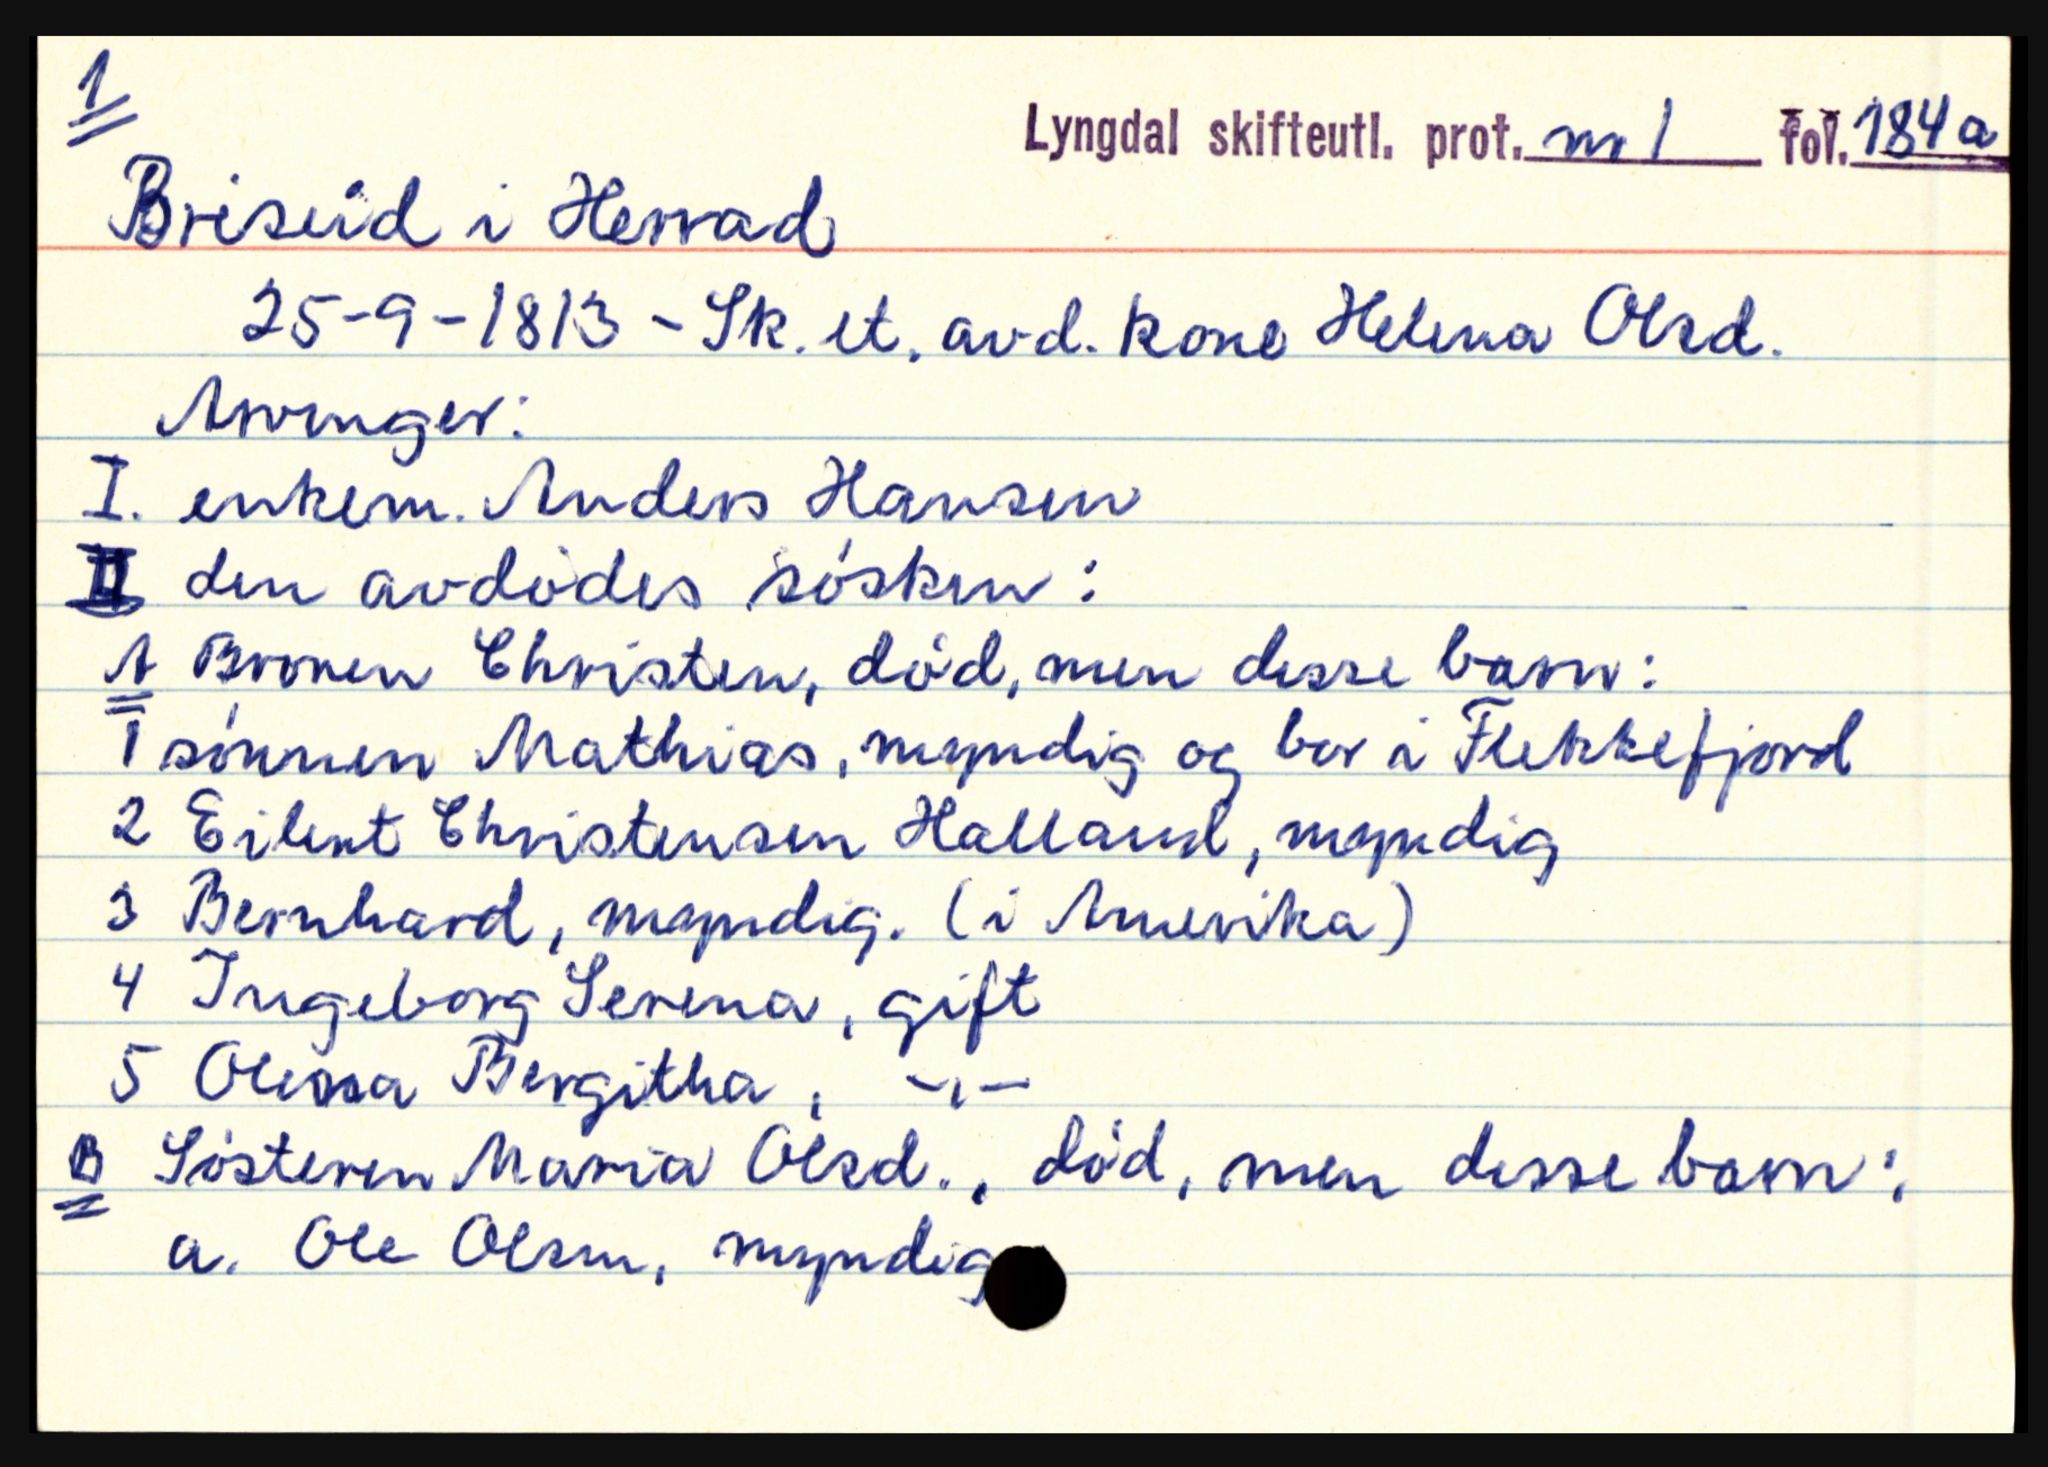 1
Lyngdal skifteutl. prot. nr 1 fol. 184a
Briseid i Herrad
25-9-1813 - Sk. et. avd. kone Helena Olsd.
Arvinger:
I. enkem. Anders Hansen
II den avdødes søsken:
A Broren Christen, død, men desse barn:
1 sønnen Mathias, myndig og bor i Flekkefjord
2 Eilert Christensen Halland, myndig
3 Bernhard, myndig. (i Amerika)
4 Ingeborg Serena, gift
5 Olena Bergitha, -,-
B Søsteren Maria Olsd., død, men desse barn:
a. Ole Olsen, myndig